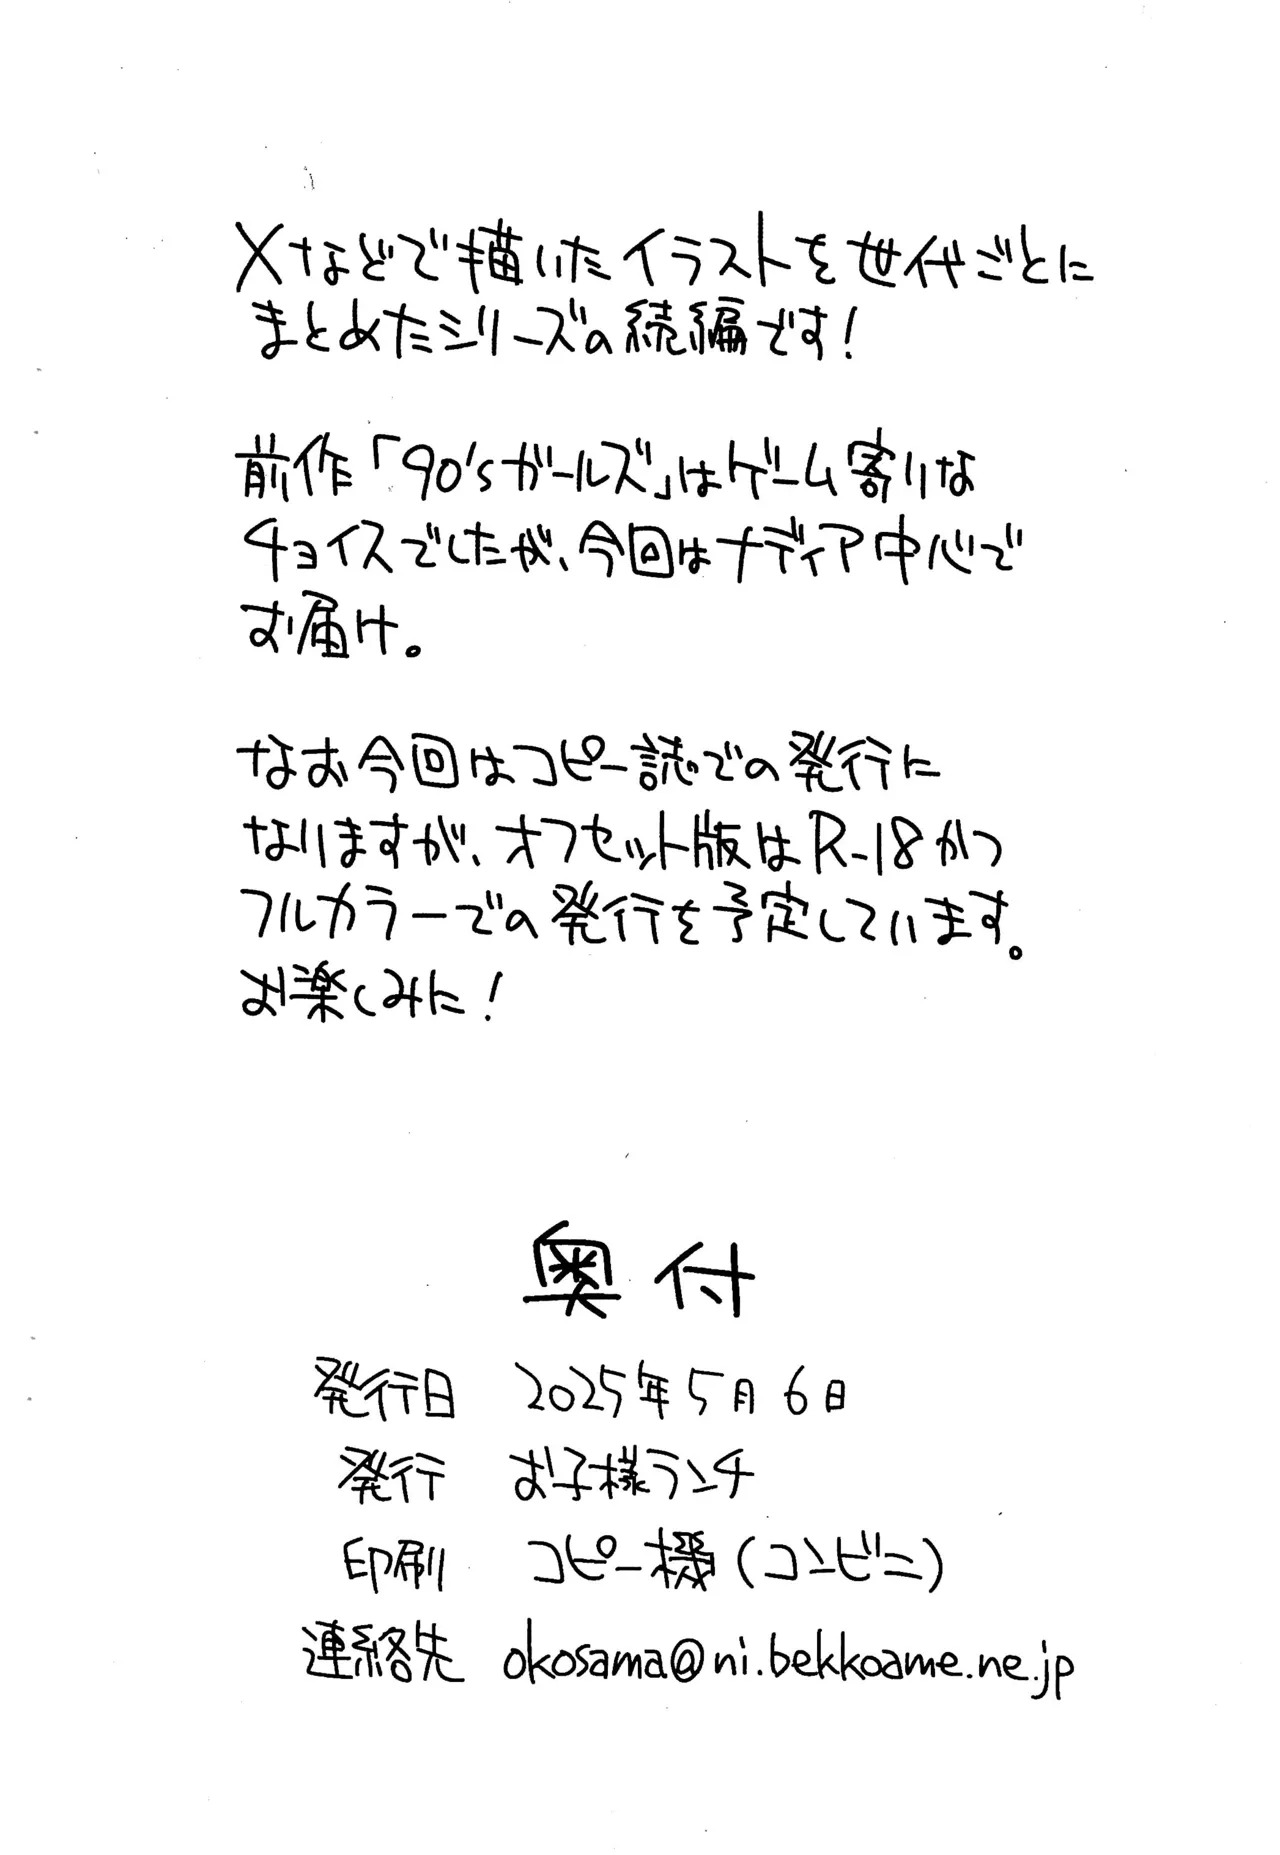 Xなどで描いたイラストを世代ごとに
まとめたシリーズの続編です!
前作「90'sガールズ」はゲーム寄りな
チョイスでしたが、今回はナディア中心で
お届け。
なお今回はコピー誌での発行に
なりますが、オフセット版はR-18かつ
フルカラーでの発行を予定しています。
お楽しみに!
奥付
発行日 2025年5月6日
発行 お子様ランチ
印刷 コピー機(コンビニ)
連絡先 okosama@ni.bekkoame.ne.jp